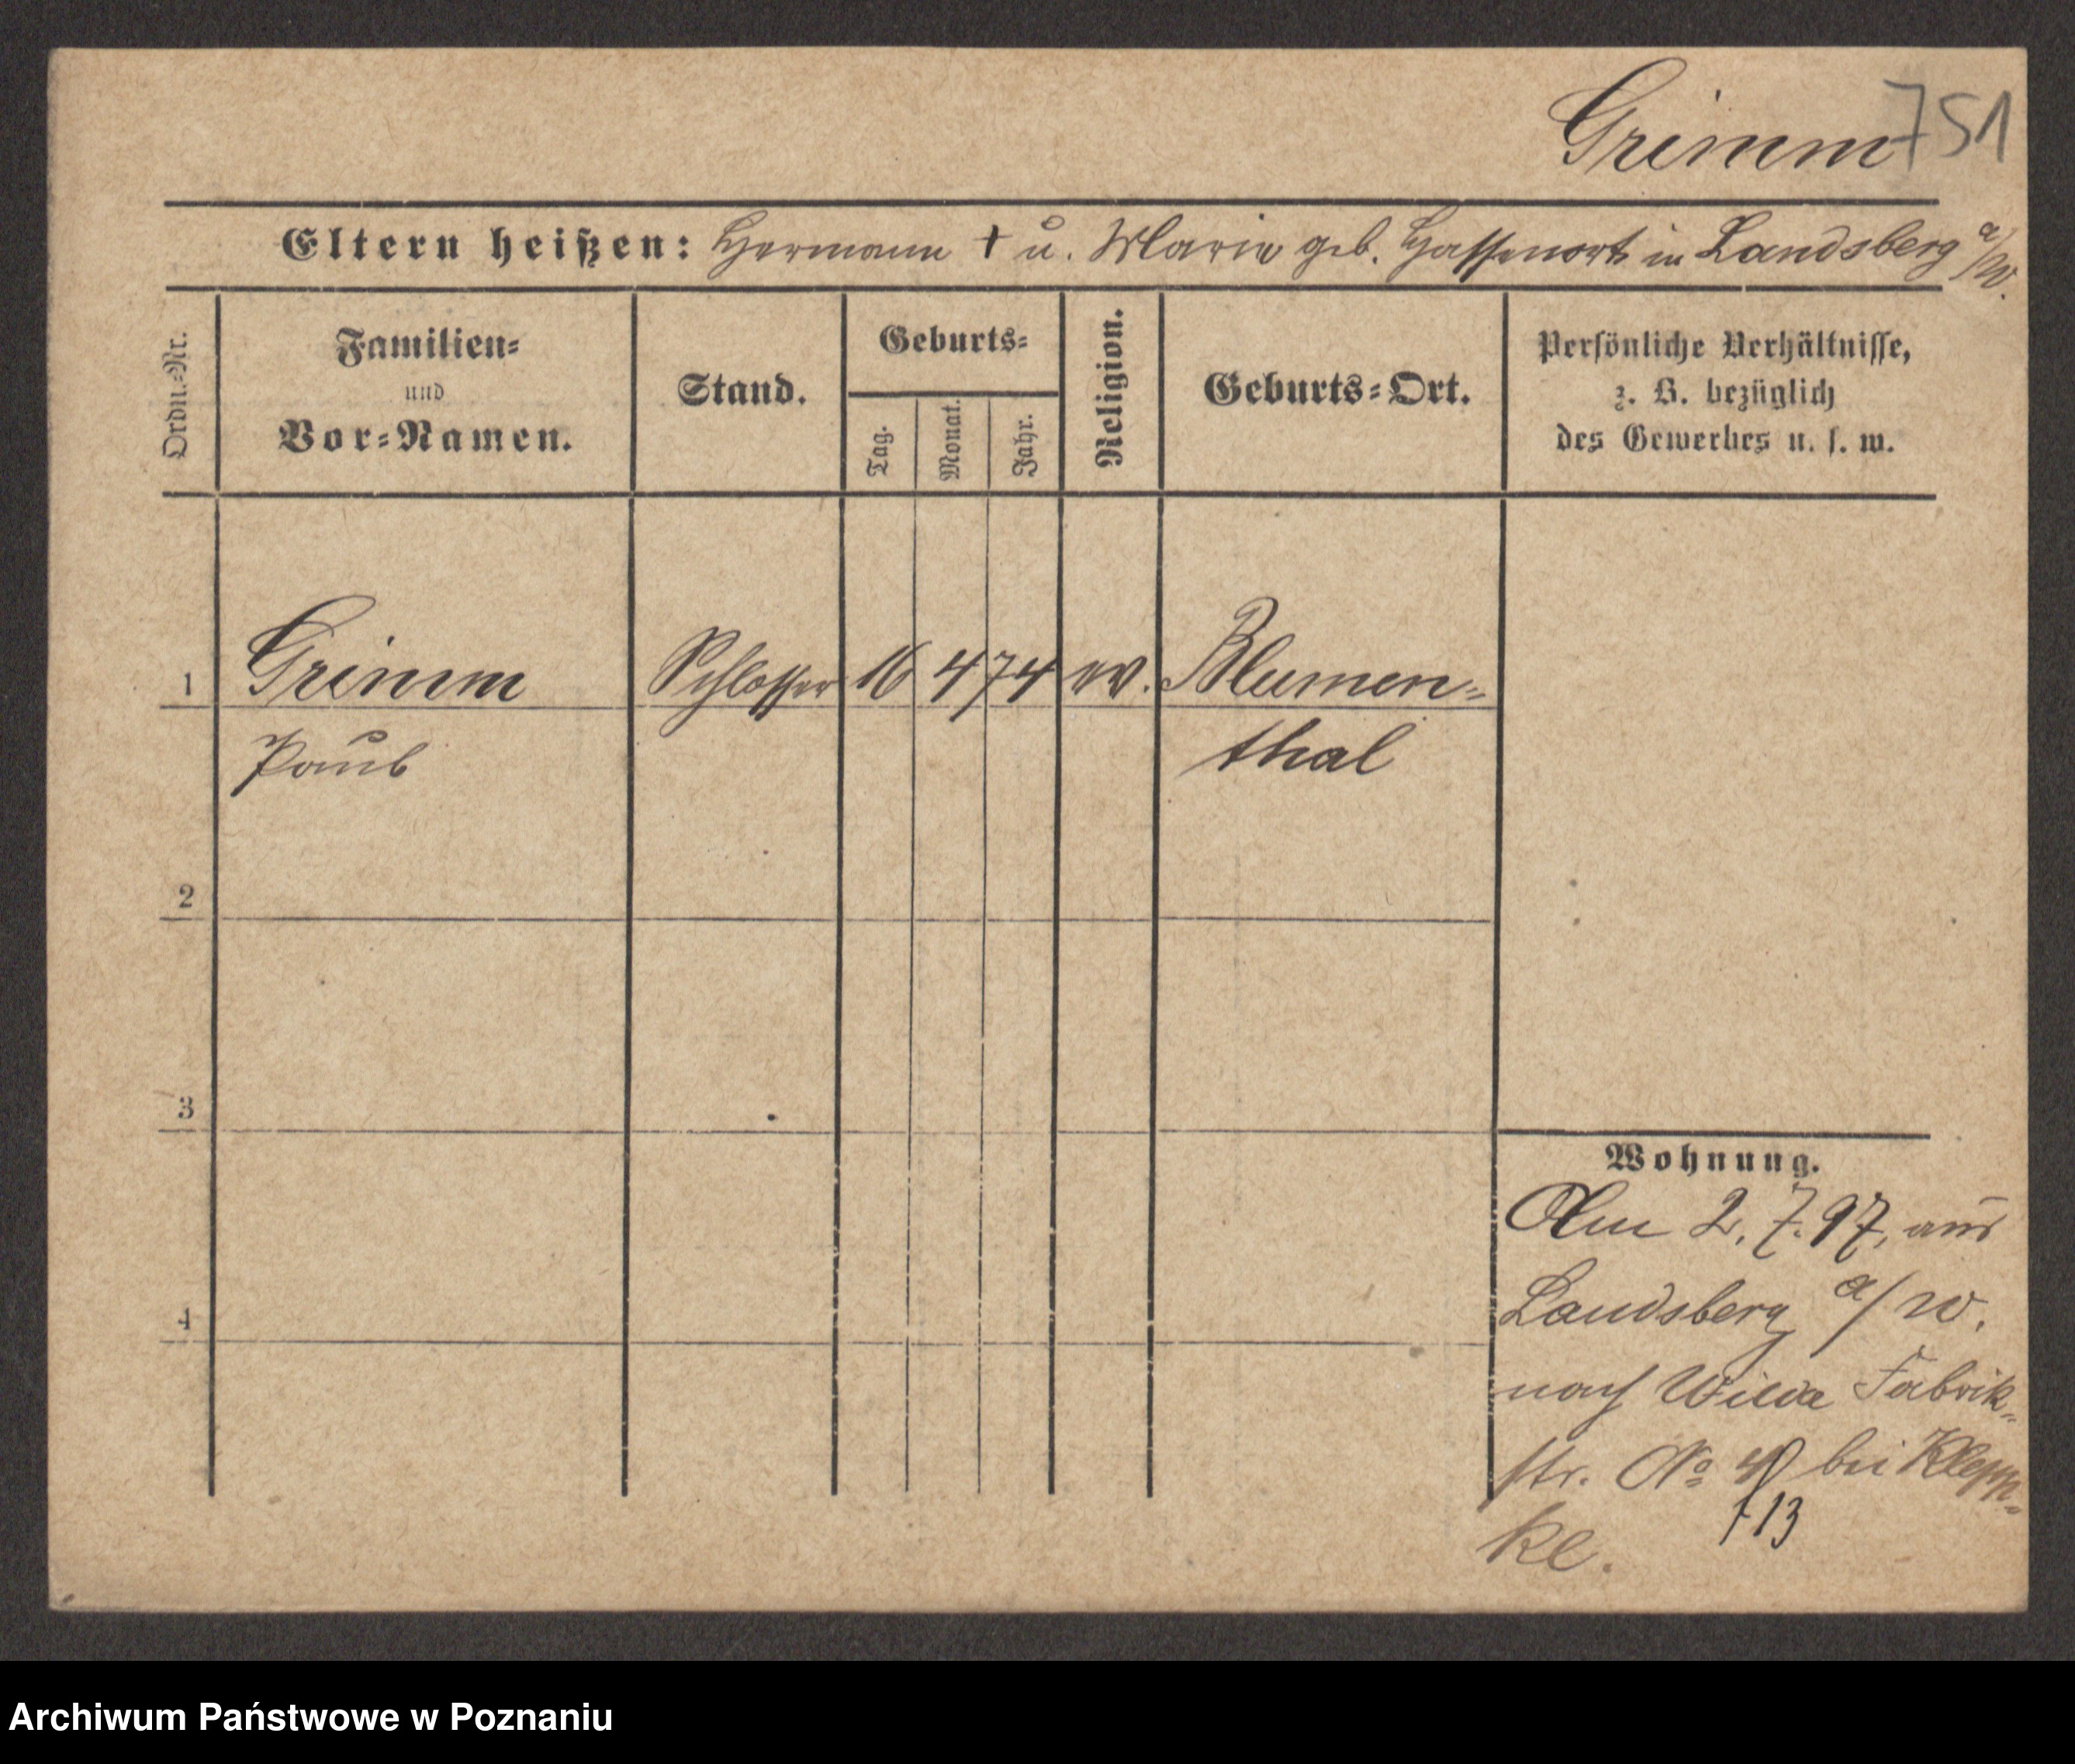 Grimm 751
Eltern heißen: Hermann † u. Marie geb. Hassenort in Landsberg a/W.
Ordn.=Nr.
Familien=
und
Vor=Namen.
Stand.
Geburts=
Tag.
Monat.
Jahr.
Religion.
Geburts=Ort.
Persönliche Verhältnisse,
z. B. bezüglich
des Gewerbes u. s. w.
1 Grimm Schlosser 16 4 74 ev. Blumen=
Paul thal
2
3
4
Wohnung.
Am 2. 7. 97, aus
Landsberg a/W.
nach Wilda Fabrik=
str. No bei Klepp=
ke. 713
Archiwum Państwowe w Poznaniu